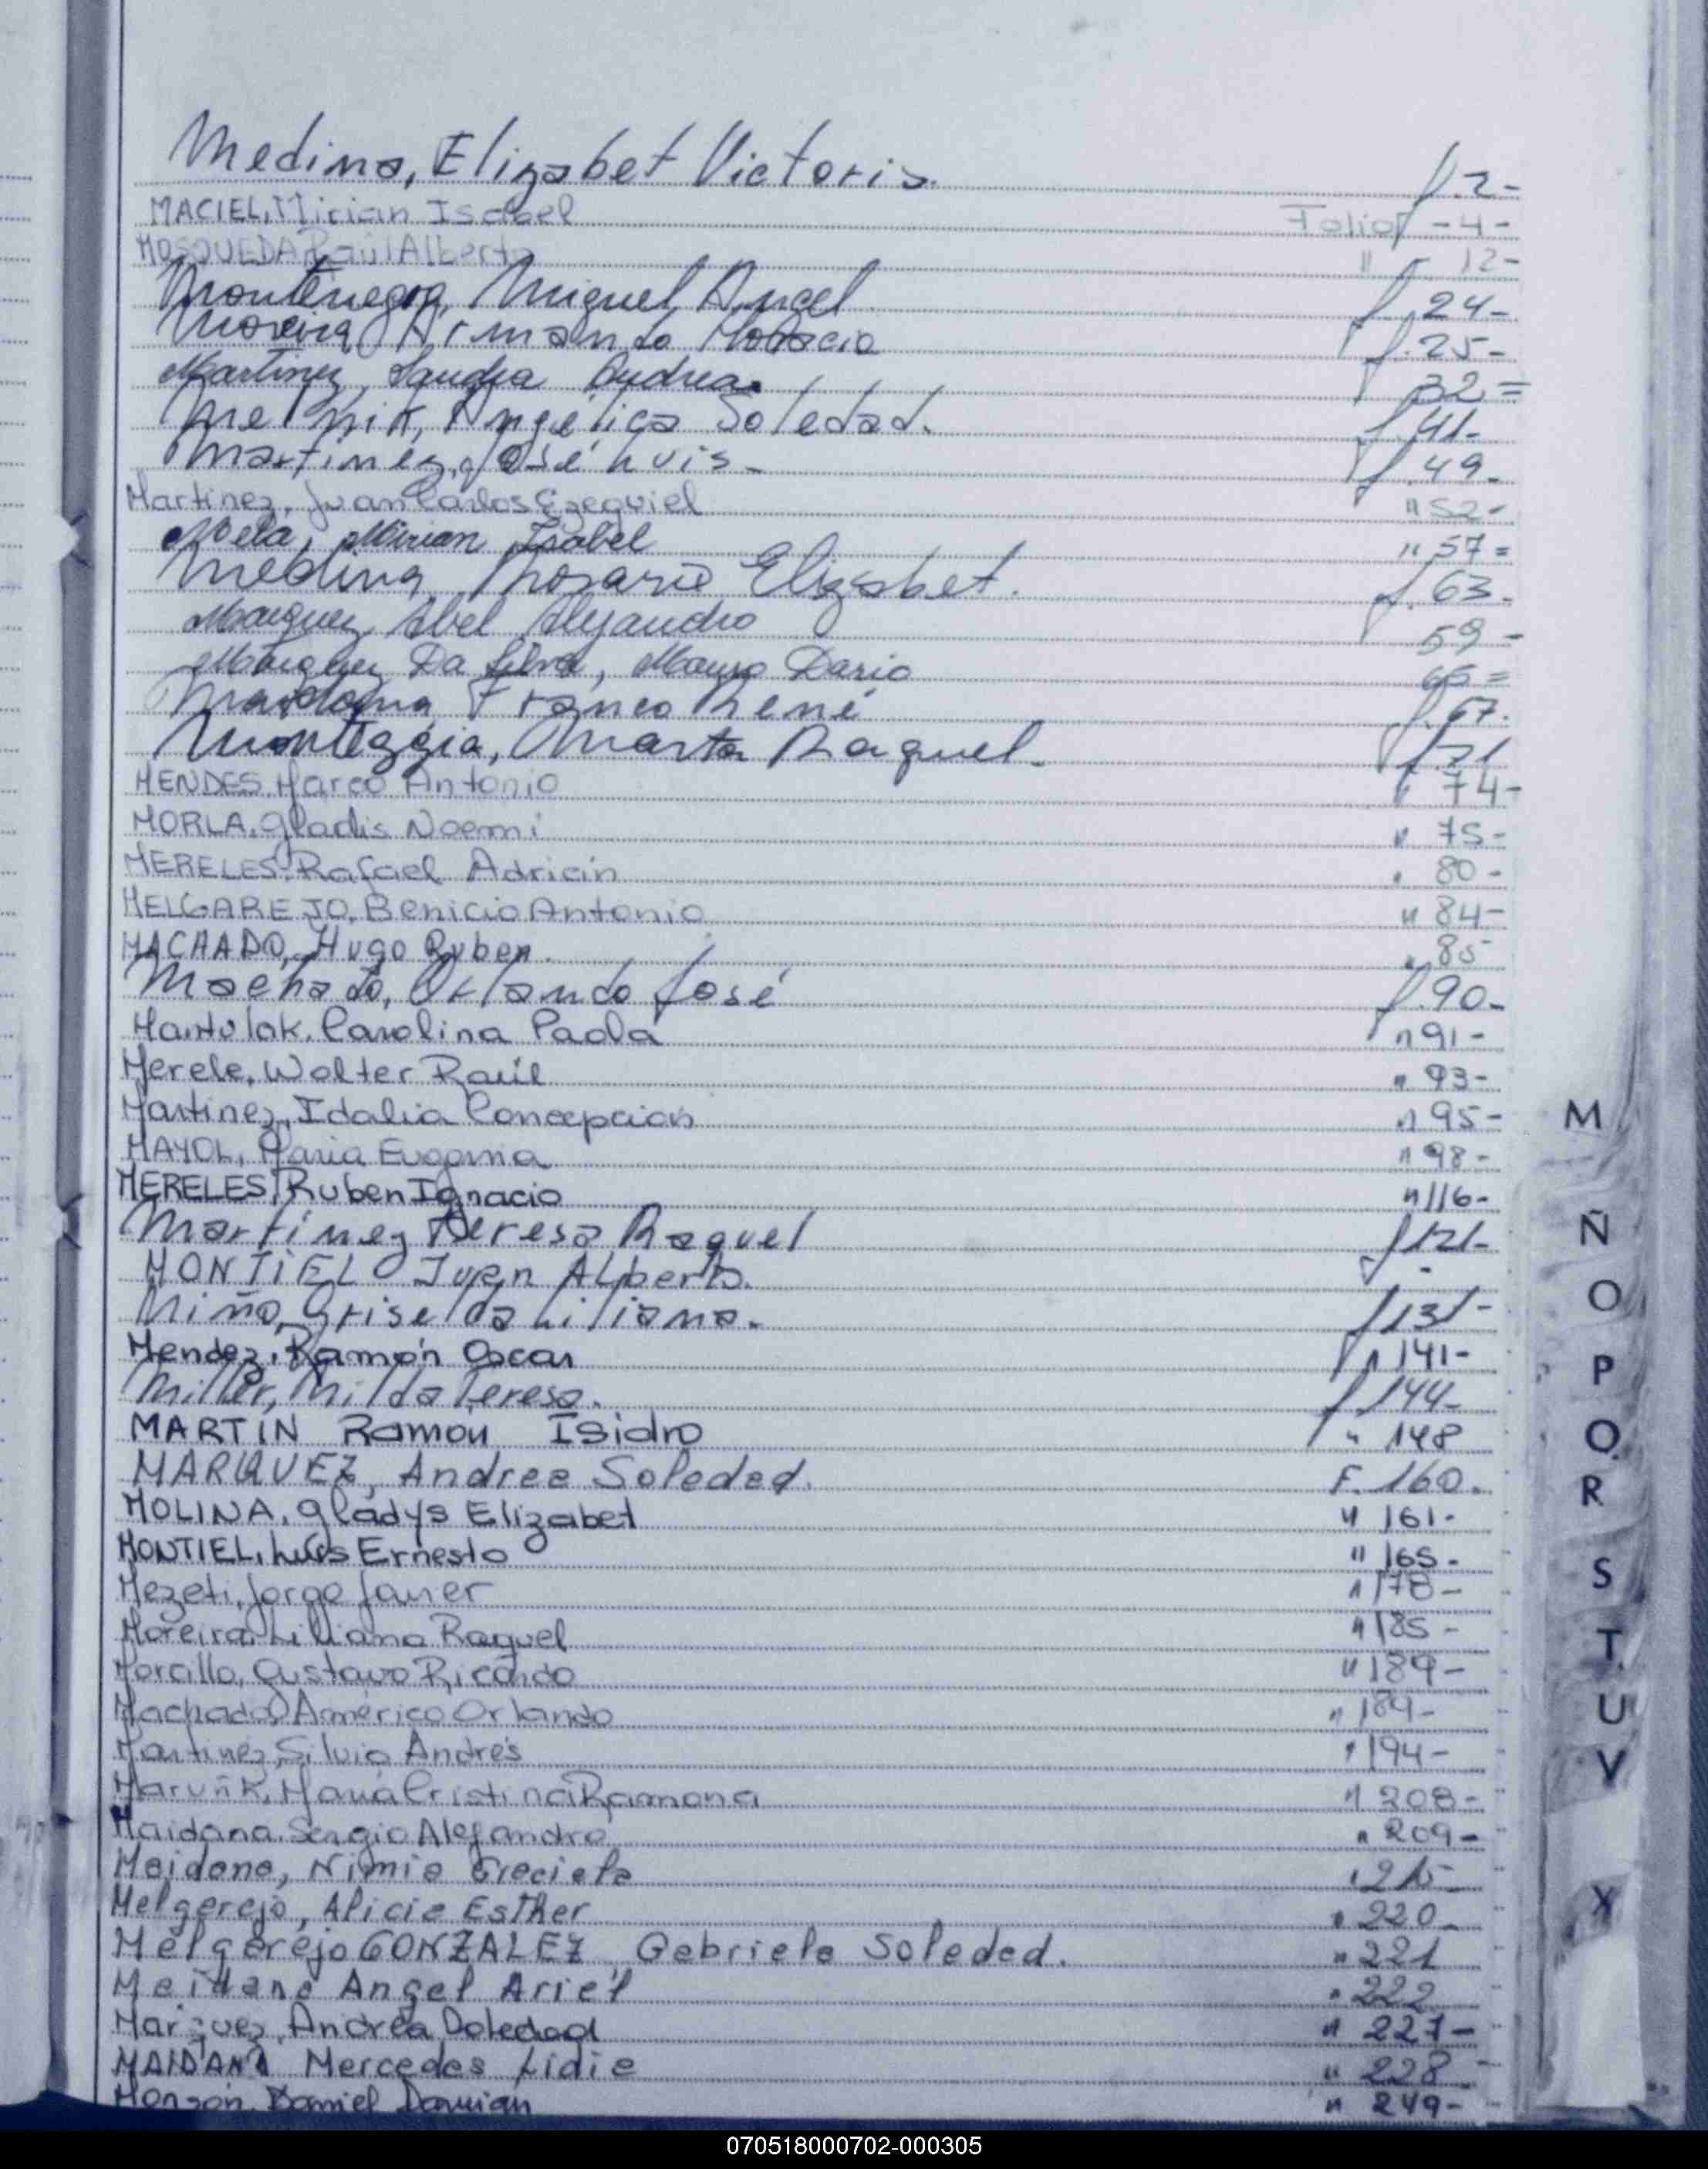 Medina, Elizabet Victoria. f. 2-
MACIEL, Mirian Isabel Folio -4-
MOSQUEDA Raúl Alberto " 12-
Montenegro, Miguel Angel f. 24-
Moreira, Armando Horacio f. 25-
Martinez, Sandra Andrea. 32=
Melnik, Angélica Soledad. f. 41-
Martinez, José Luis- f. 49-
Martinez, Juan Carlos Ezequiel " 52-
Mela, Mirian Isabel " 57=
Medina, Rosario Elizabet. f. 63-
Marquez, Abel Alejandro 59-
Marquez Da Silva, Mauro Dario 65=
Maidana, Franco René f. 67.
Monteggia, Marta Raquel- f. 71
MENDES, Marco Antonio " 74-
MORLA, Gladis Noemi " 75-
MERELES, Rafael Adrián " 80-
MELGAREJO, Benicio Antonio " 84-
MACHADO, Hugo Ruben. " 85
Machado, Orlando José f. 90-
Carolina Paola " 91-
Merele, Walter Raúl " 93-
Martinez, Idalia Concepcion " 95-
MAYOL, Maria Eugenia " 98-
MERELES, Ruben Ignacio " 116-
Martinez Teresa Raquel f 121-
MONTIEL Juan Alberto.
Miño, Griselda Liliana. f 131-
Mendez, Ramón Oscar " 141-
Miller, Milda Teresa. f 144-
MARTIN Ramón Isidro " 148
MARQUEZ, Andrea Soledad. F. 160.
MOLINA, Gladys Elizabet " 161-
MONTIEL, Luis Ernesto " 165-
Mezeti, Jorge Javier " 178-
Moreira, Liliana Raquel " 185-
Morcillo, Gustavo Ricardo " 189-
Machado, Américo Orlando " 189-
Martinez, Silvio Andrés " 194-
María Cristina Ramona " 208-
Maidana Sergio Alejandro " 209-
Maidana, Nimia Graciela " 215
Melgarejo, Alicia Esther " 220-
Melgarejo GONZALEZ Gabriela Soledad. " 221
Maidana Angel Ariel " 222
Marquez, Andrea Soledad " 227-
MAIDANA Mercedes Lidia " 228
Monzón, Daniel Damián " 249-
M
Ñ
O
P
Q
R
S
T
U
V
X
070518000702-000305